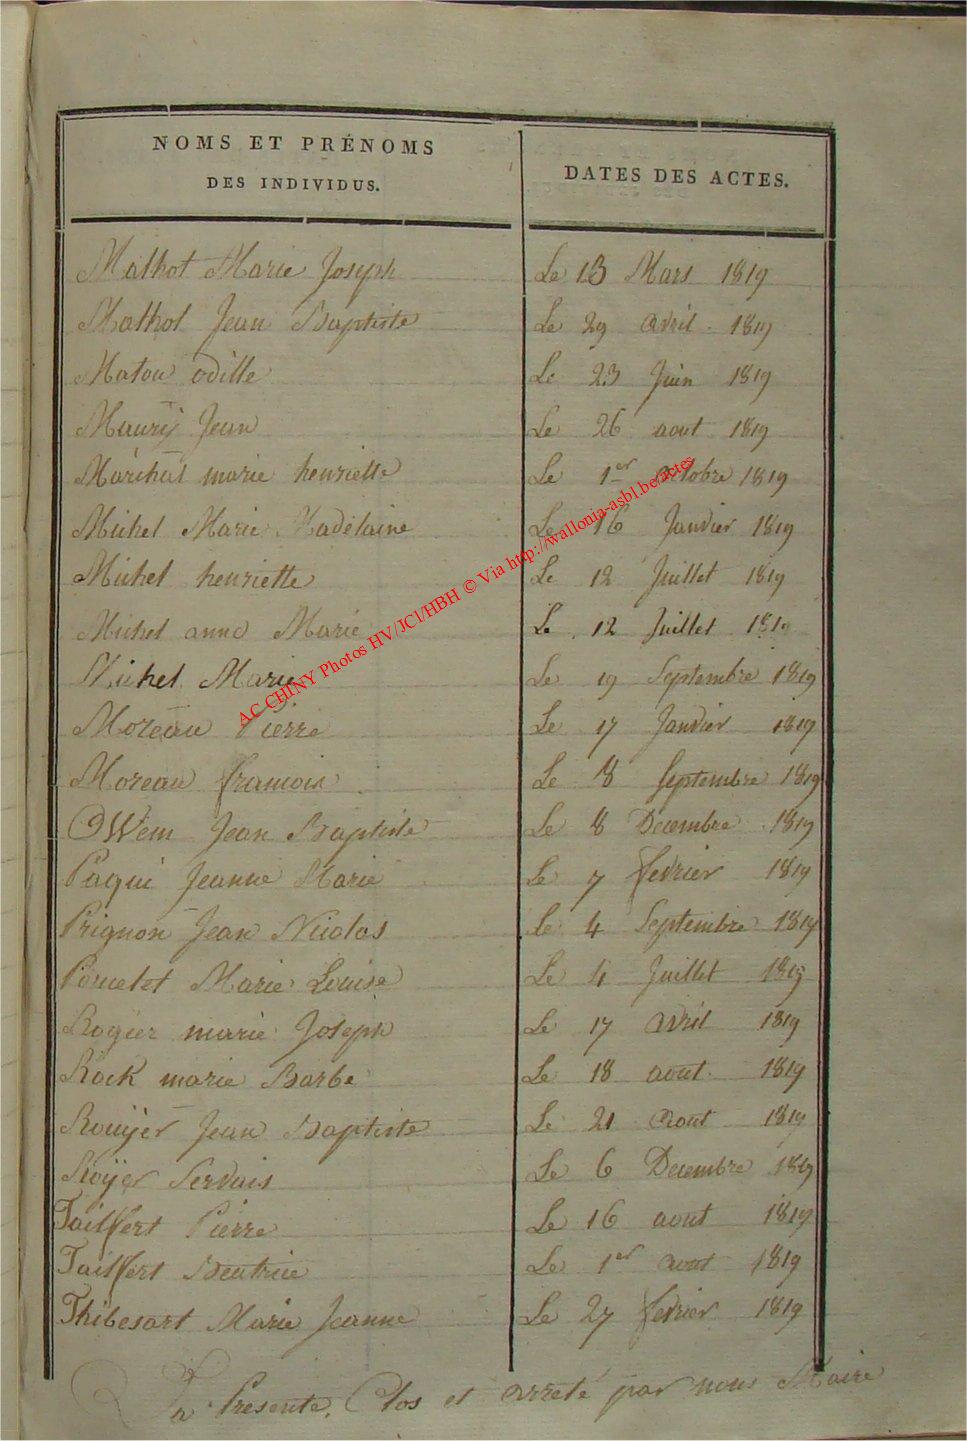 NOMS ET PRÉNOMS
DES INDIVIDUS.
DATES DES ACTES.
Mathot Marie Joseph Le 13 Mars 1819
Mathot Jean Baptiste Le 29 avril 1819
Matou odille Le 23 Juin 1819
Maury Jean Le 26 aout 1819
Maréchal marie henriette Le 1er octobre 1819
Michel Marie Madelaine Le 16 Janvier 1819
Michel henriette Le 12 Juillet 1819
Michel anne Marie Le 12 Juillet 1819
Michel Marie Le 19 Septembre 1819
Moreau Pierre Le 17 Janvier 1819
Moreau francois Le 8 Septembre 1819
OWem Jean Baptiste Le 8 Decembre 1819
Paqui Jeanne Marie Le 7 fevrier 1819
Prignon Jean Nicolas Le 4 Septembre 1819
Poncelet Marie Louise Le 4 Juillet 1819
Rogier marie Joseph Le 17 avril 1819
Rock marie Barbe Le 18 aout 1819
Rouÿer Jean Baptiste Le 21 aout 1819
Roÿer Servais Le 6 Decembre 1819
Tailfert Pierre Le 16 aout 1819
Tailfert Beatrice Le 1er aout 1819
Thibesart Marie Jeanne Le 27 fevrier 1819
La Presente Clos et arreté par nous Maire
AC CHINY Photos HV/JCl/HBH © Via http://wallonia-asbl.be/actes